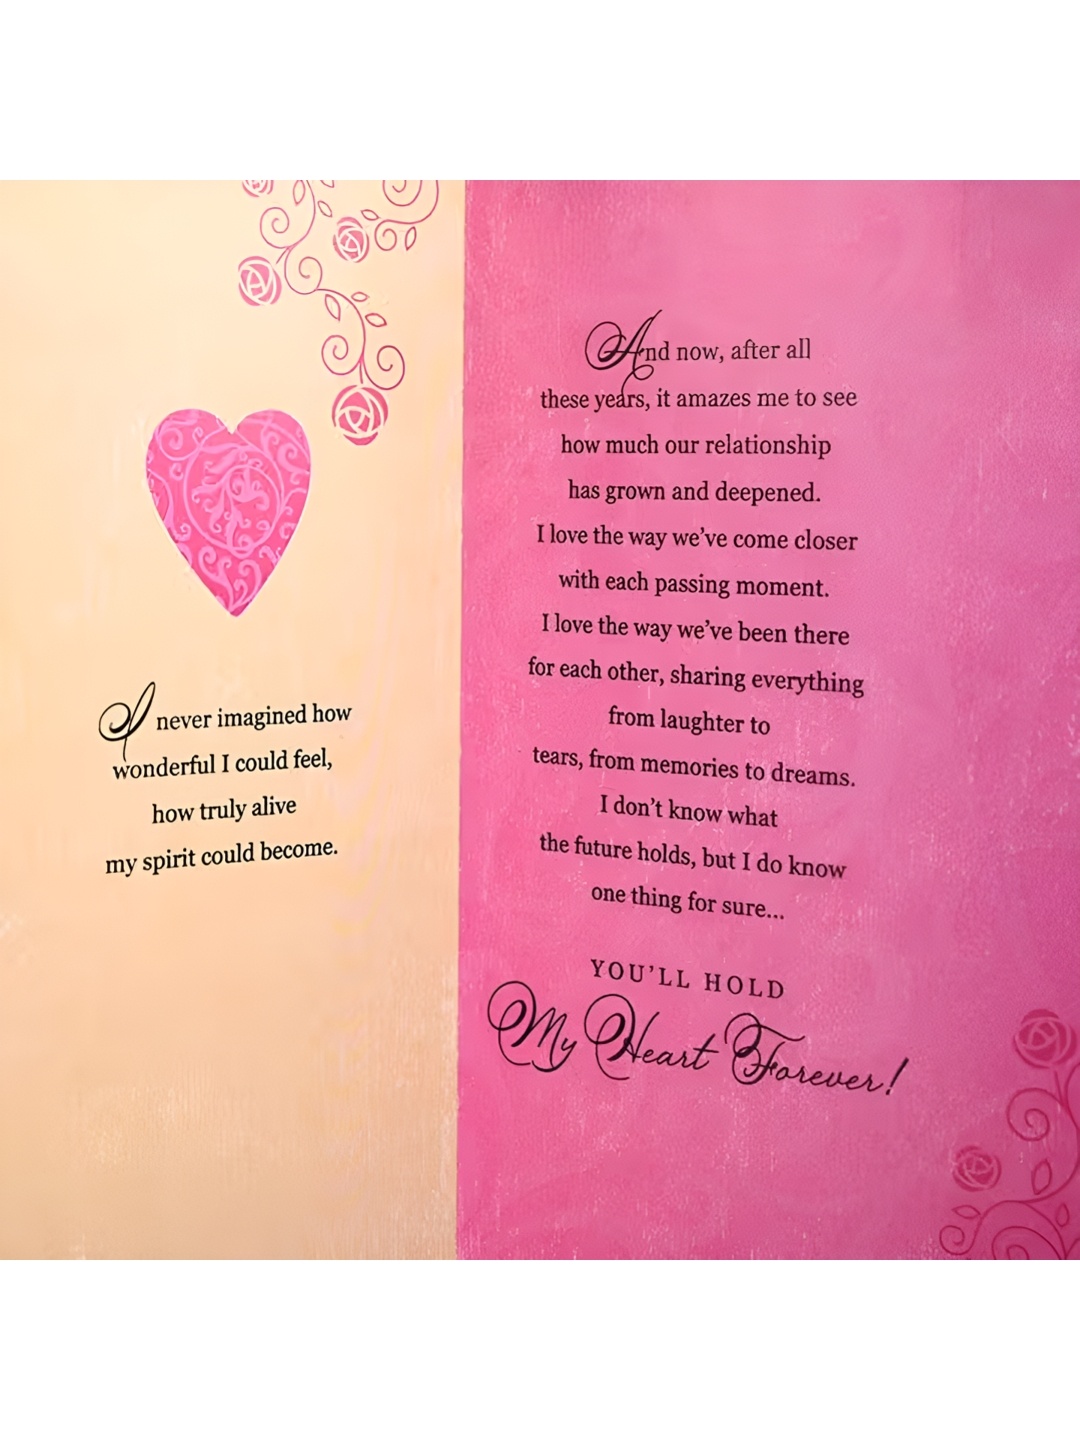 I never imagined how
wonderful I could feel,
how truly alive
my spirit could become.
And now, after all
these years, it amazes me to see
how much our relationship
has grown and deepened.
I love the way we've come closer
with each passing moment.
I love the way we've been there
for each other, sharing everything
from laughter to
tears, from memories to dreams.
I don't know what
the future holds, but I do know
one thing for sure...
YOU'LL HOLD
My Heart Forever!